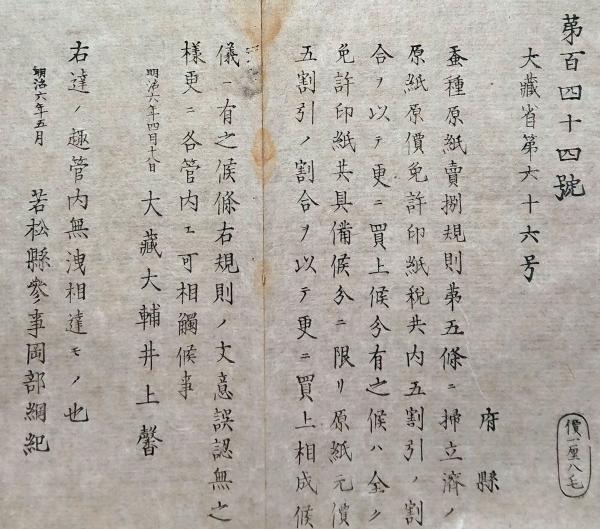 第百四十四號
大藏省第六十六号
府縣
蚕種原紙賣捌規則第五條ニ掃立濟ノ
原紙原價免許印紙税共内五割引ノ割
合ヲ以テ更ニ買上候分有之候ハ全ク
免許印紙共具備候分ニ限リ原紙元價
五割引ノ割合ヲ以テ更ニ買上相成候
儀ニ有之候條右規則ノ文意誤認無之
様更ニ各管内エ可相觸候事
明治六年四月十八日 大藏大輔井上馨
右達ノ趣管内無洩相達モノ也
明治六年五月 若松縣參事岡部綱紀
價一厘八毛